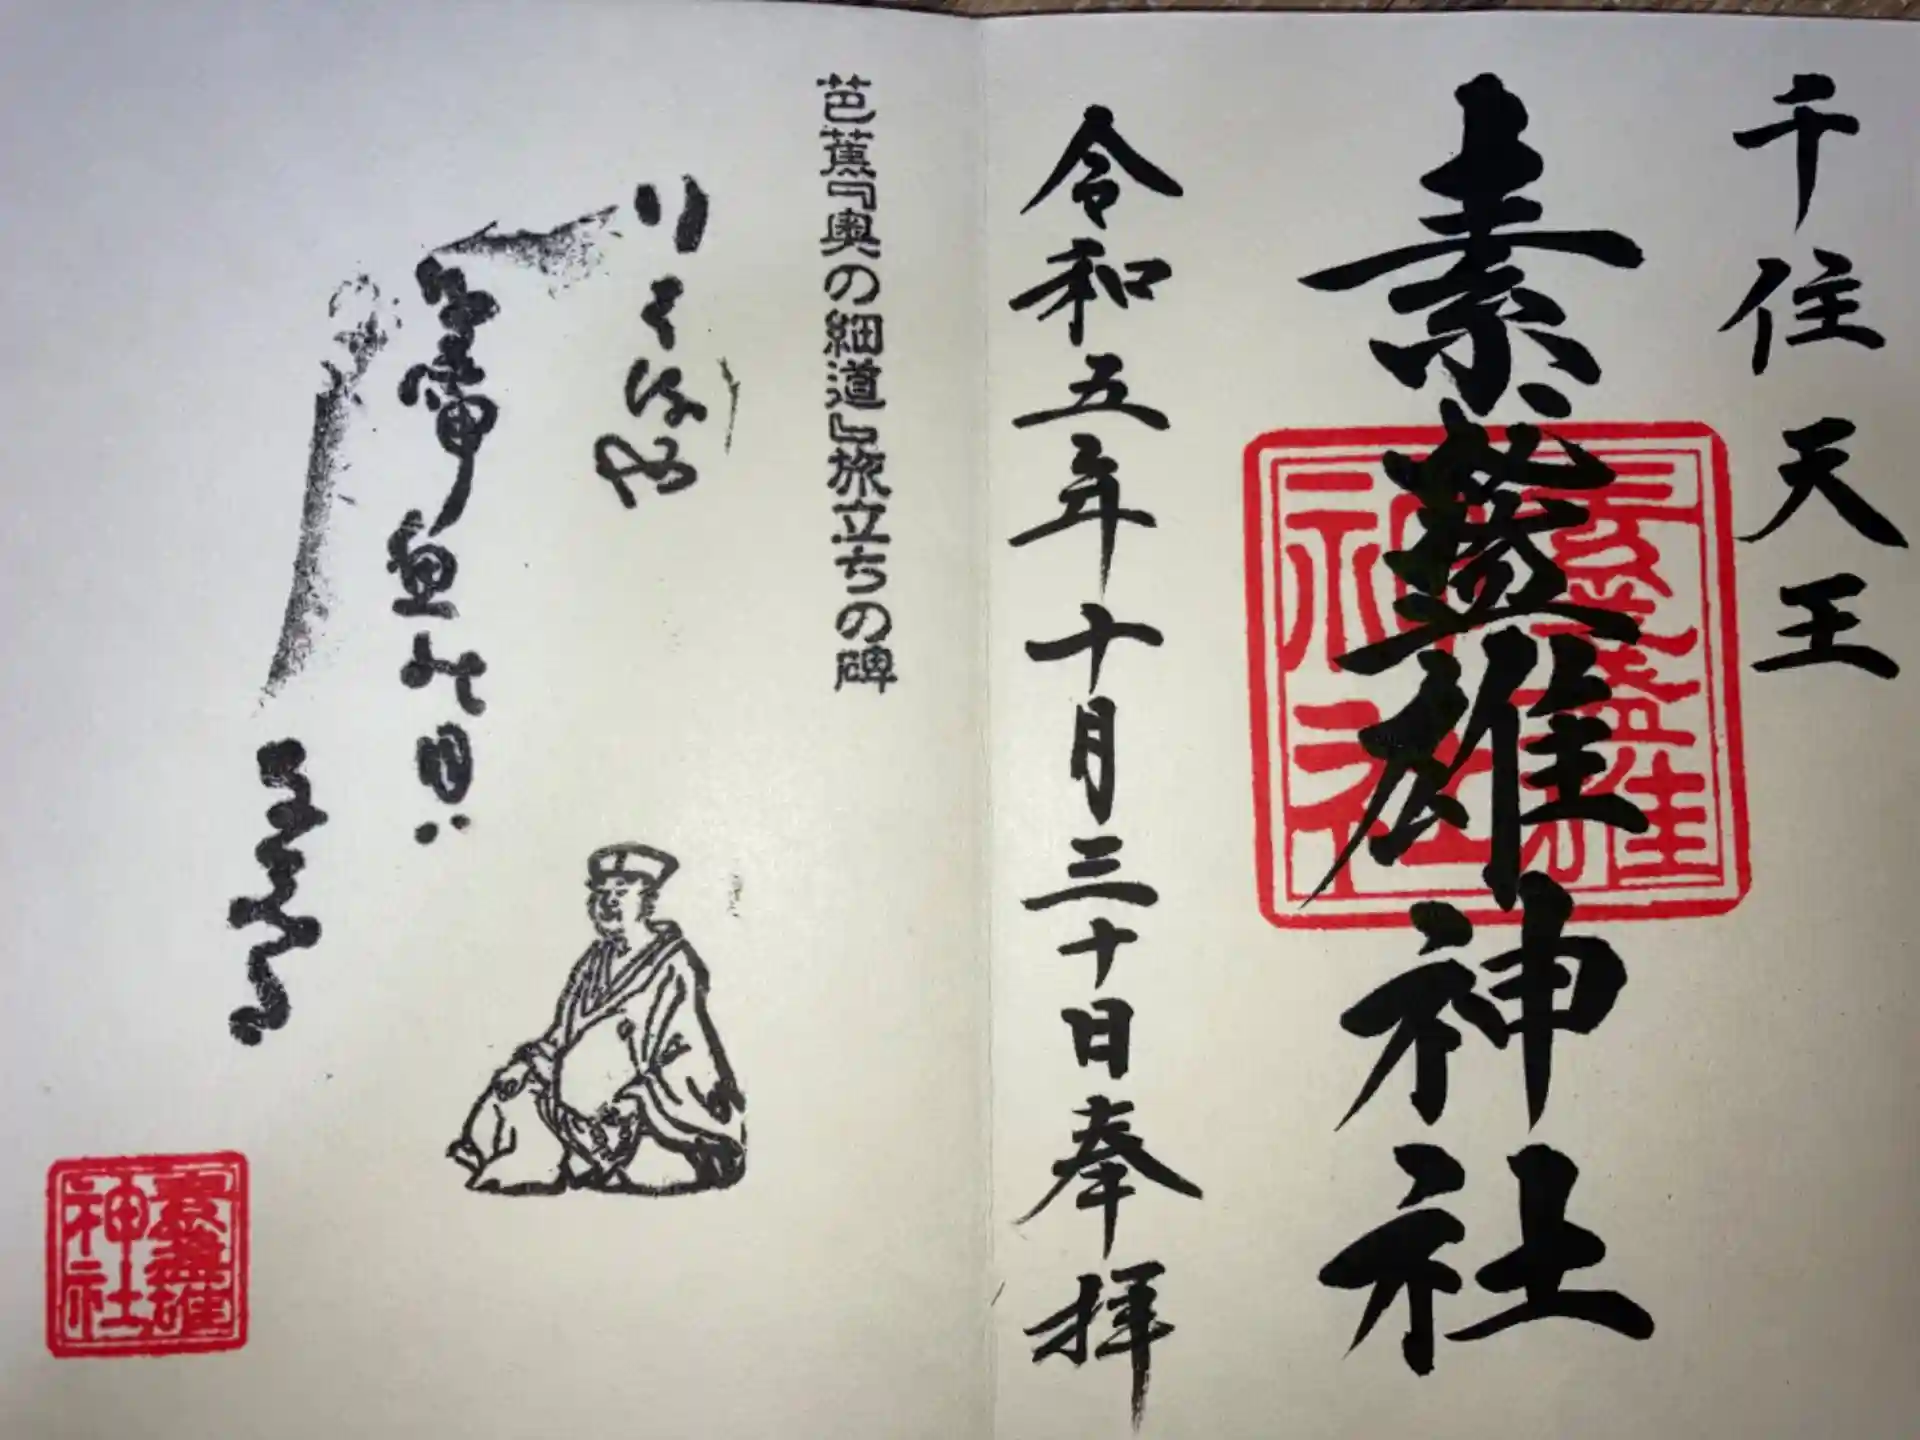 千住天王
素盞雄神社
素盞雄神社
令和五年十月三十日奉拝
芭蕉『奥の細道』旅立ちの碑
行く春や
鳥啼魚の目は
素盞雄神社